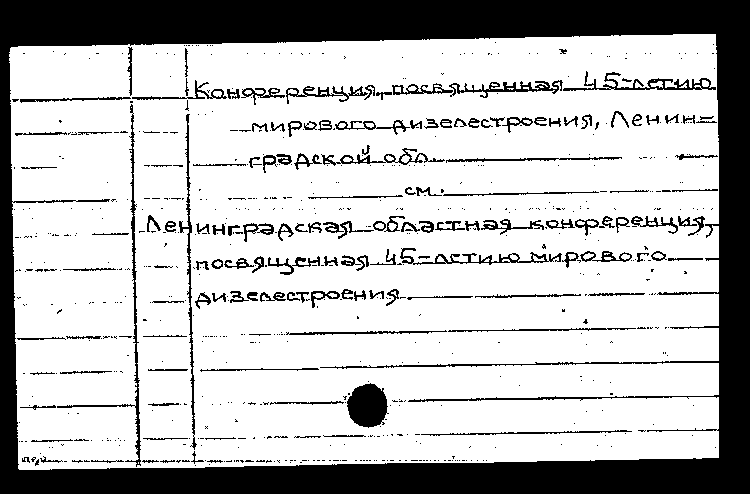 Конференция, посвященная 45-летию
мирового дизелестроения, Ленин=
градской обл.
см.
Ленинградская областная конференция,
посвященная 45-летию мирового
дизелестроения.